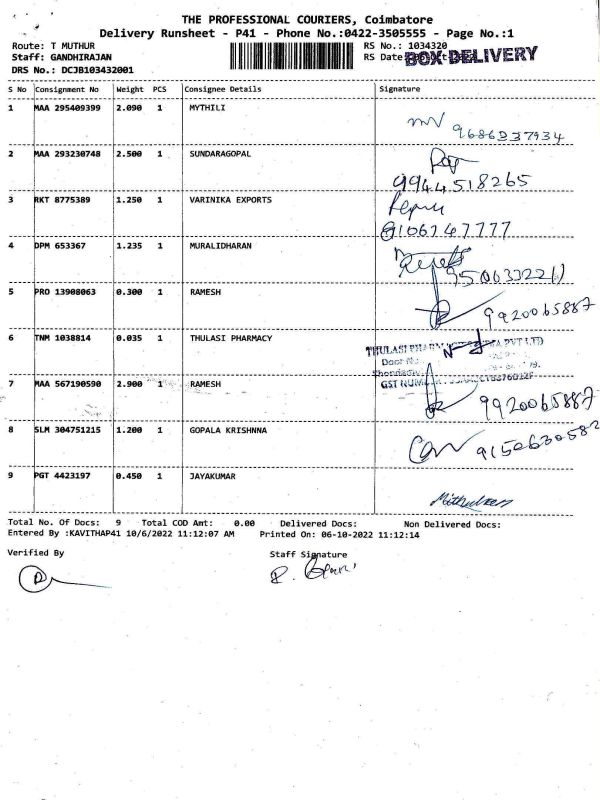 THE PROFESSIONAL COURIERS, Coimbatore
Delivery Runsheet - P41 - Phone No.:0422-3505555 - Page No.:1
Route: T MUTHUR
RS No.: 1034320
Staff: GANDHIRAJAN
RS Date:
BOX DELIVERY
DRS No.: DCJB103432001
S No Consignment No Weight PCS Consignee Details Signature
1 MAA 295409399 2.090 1 MYTHILI
9686337934
2 MAA 293230748 2.500 1 SUNDARAGOPAL
9944518265
3 RKT 8775389 1.250 1 VARINIKA EXPORTS
4 DPM 653367 1.235 1 MURALIDHARAN
5 PRO 13908063 0.300 1 RAMESH
9920065887
6 TNM 1038814 0.035 1 THULASI PHARMACY
THULASI PVT LTD
7 MAA 567190590 2.900 1 RAMESH
GST
9920065887
8 SLM 304751215 1.200 1 GOPALA KRISHNNA
9150630582
9 PGT 4423197 0.450 1 JAYAKUMAR
Total No. Of Docs: 9 Total COD Amt: 0.00 Delivered Docs: Non Delivered Docs:
Entered By :KAVITHAP41 10/6/2022 11:12:07 AM Printed On: 06-10-2022 11:12:14
Verified By Staff Signature